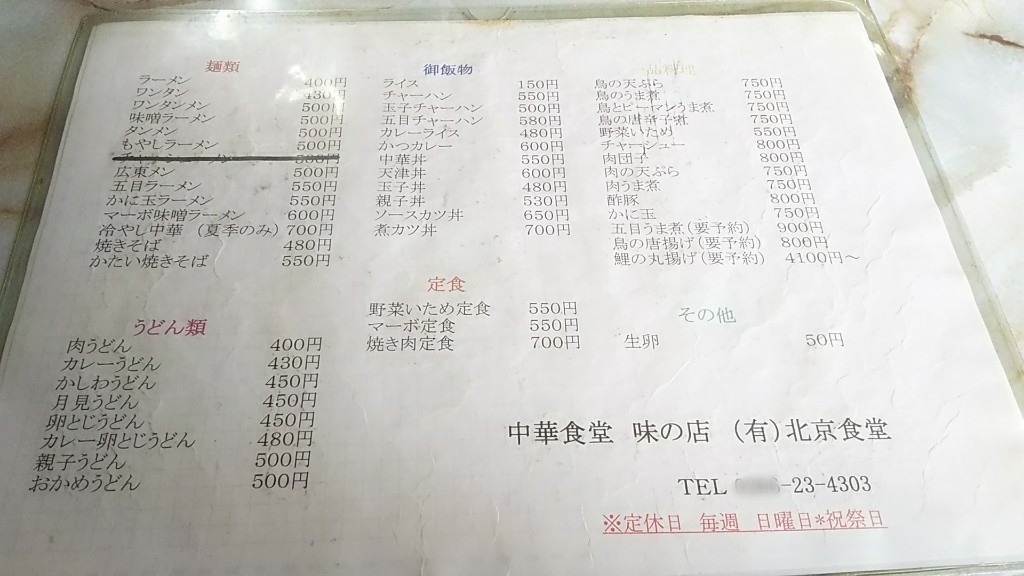 麺類
ラーメン 400円
ワンタン 430円
ワンタンメン 500円
味噌ラーメン 500円
タンメン 500円
もやしラーメン 500円
広東メン 500円
五目ラーメン 550円
かに玉ラーメン 550円
マーボ味噌ラーメン 600円
冷やし中華 (夏季のみ) 700円
焼きそば 480円
かたい焼きそば 550円
うどん類
肉うどん 400円
カレーうどん 430円
かしわうどん 450円
月見うどん 450円
卵とじうどん 450円
カレー卵とじうどん 480円
親子うどん 500円
おかめうどん 500円
御飯物
ライス 150円
チャーハン 550円
玉子チャーハン 500円
五目チャーハン 580円
カレーライス 480円
かつカレー 600円
中華丼 550円
天津丼 600円
玉子丼 480円
親子丼 530円
ソースカツ丼 650円
煮カツ丼 700円
定食
野菜いため定食 550円
マーボ定食 550円
焼き肉定食 700円
品料理
鳥の天ぷら 750円
鳥のうま煮 750円
鳥とピーマンうま煮 750円
鳥の唐辛子煮 750円
野菜いため 550円
チャーシュー 800円
肉団子 800円
肉の天ぷら 750円
肉うま煮 750円
酢豚 800円
かに玉 750円
五目うま煮(要予約) 900円
鳥の唐揚げ(要予約) 800円
鯉の丸揚げ(要予約) 4100円～
その他
生卵 50円
中華食堂 味の店 (有)北京食堂
TEL -23-4303
※定休日 毎週 日曜日*祝祭日